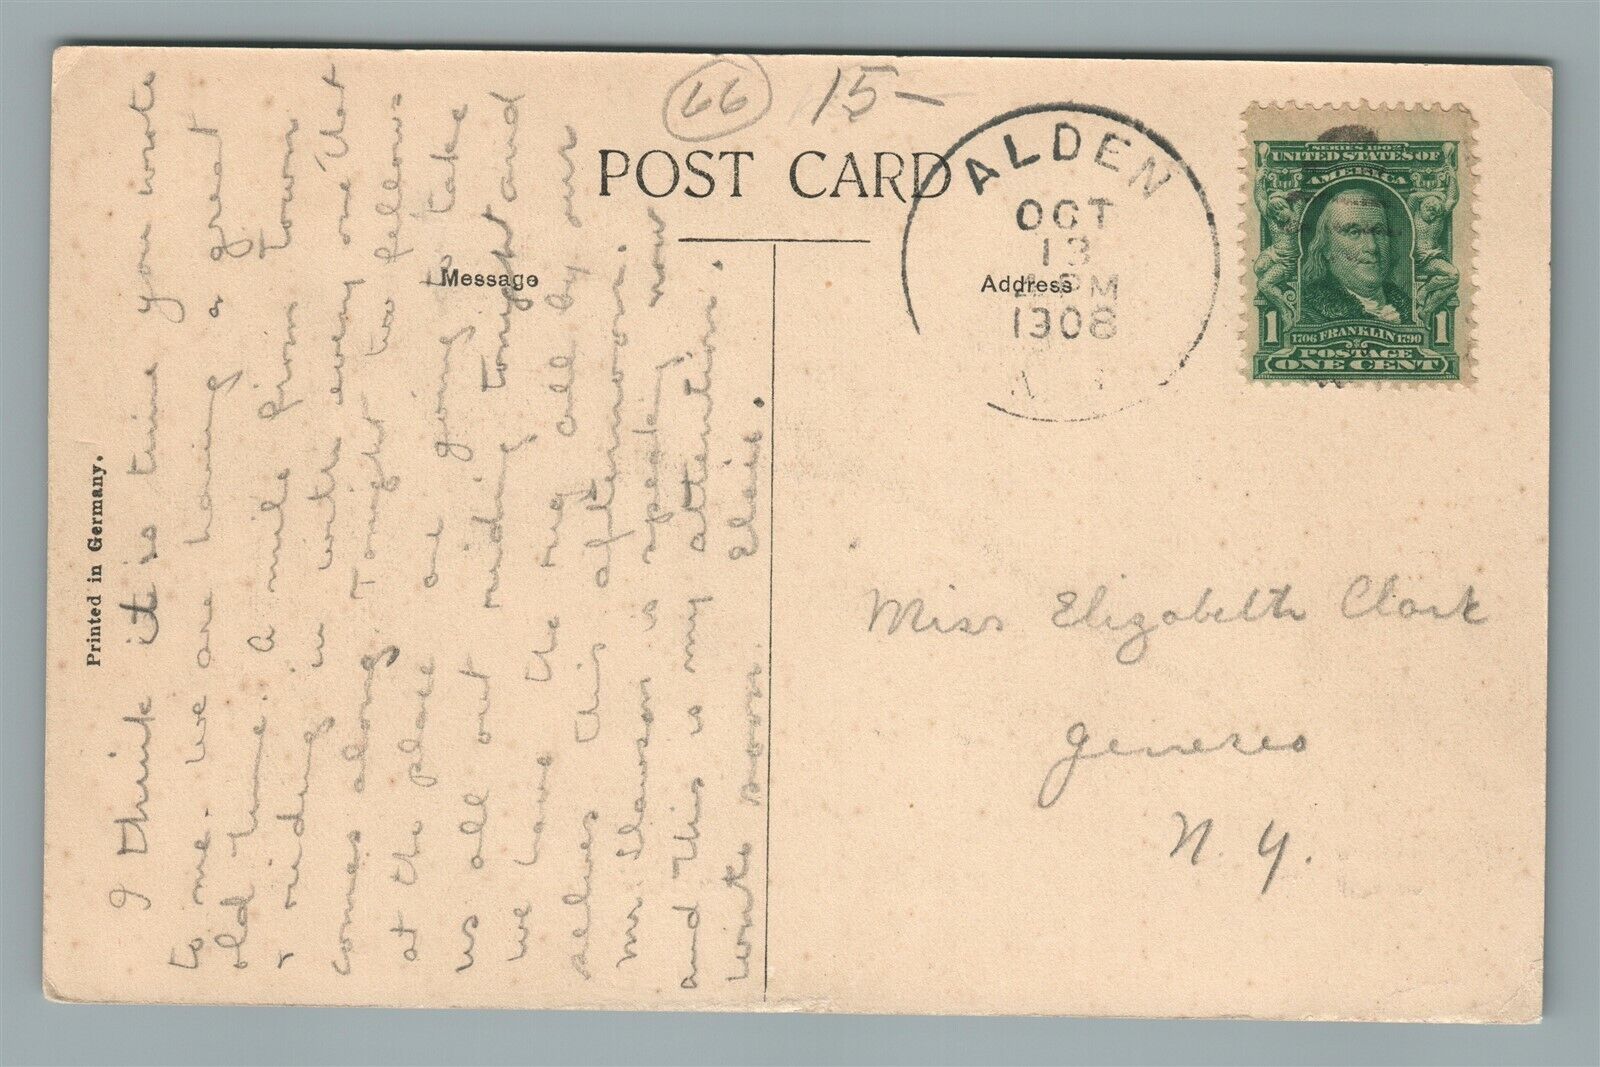 66 15-
POST CARD
Message
Address
ALDEN
OCT
13
PM
1908
SERIES 1902
UNITED STATES OF
AMERICA
1 1706 FRANKLIN 1790 1
POSTAGE
ONE CENT
Printed in Germany.
I think it is time you wrote
to me. We are having a great
old time. A mile from town
+ riding in with every one that
comes along. Tonight two fellows
at the place are going to take
us all out riding tonight and
we have the rig all by our
selves this afternoon.
Mr. Lawson is speaking now
and this is my attention.
Write soon. Elsie.
Miss Elizabeth Clark
Geneseo
N. Y.